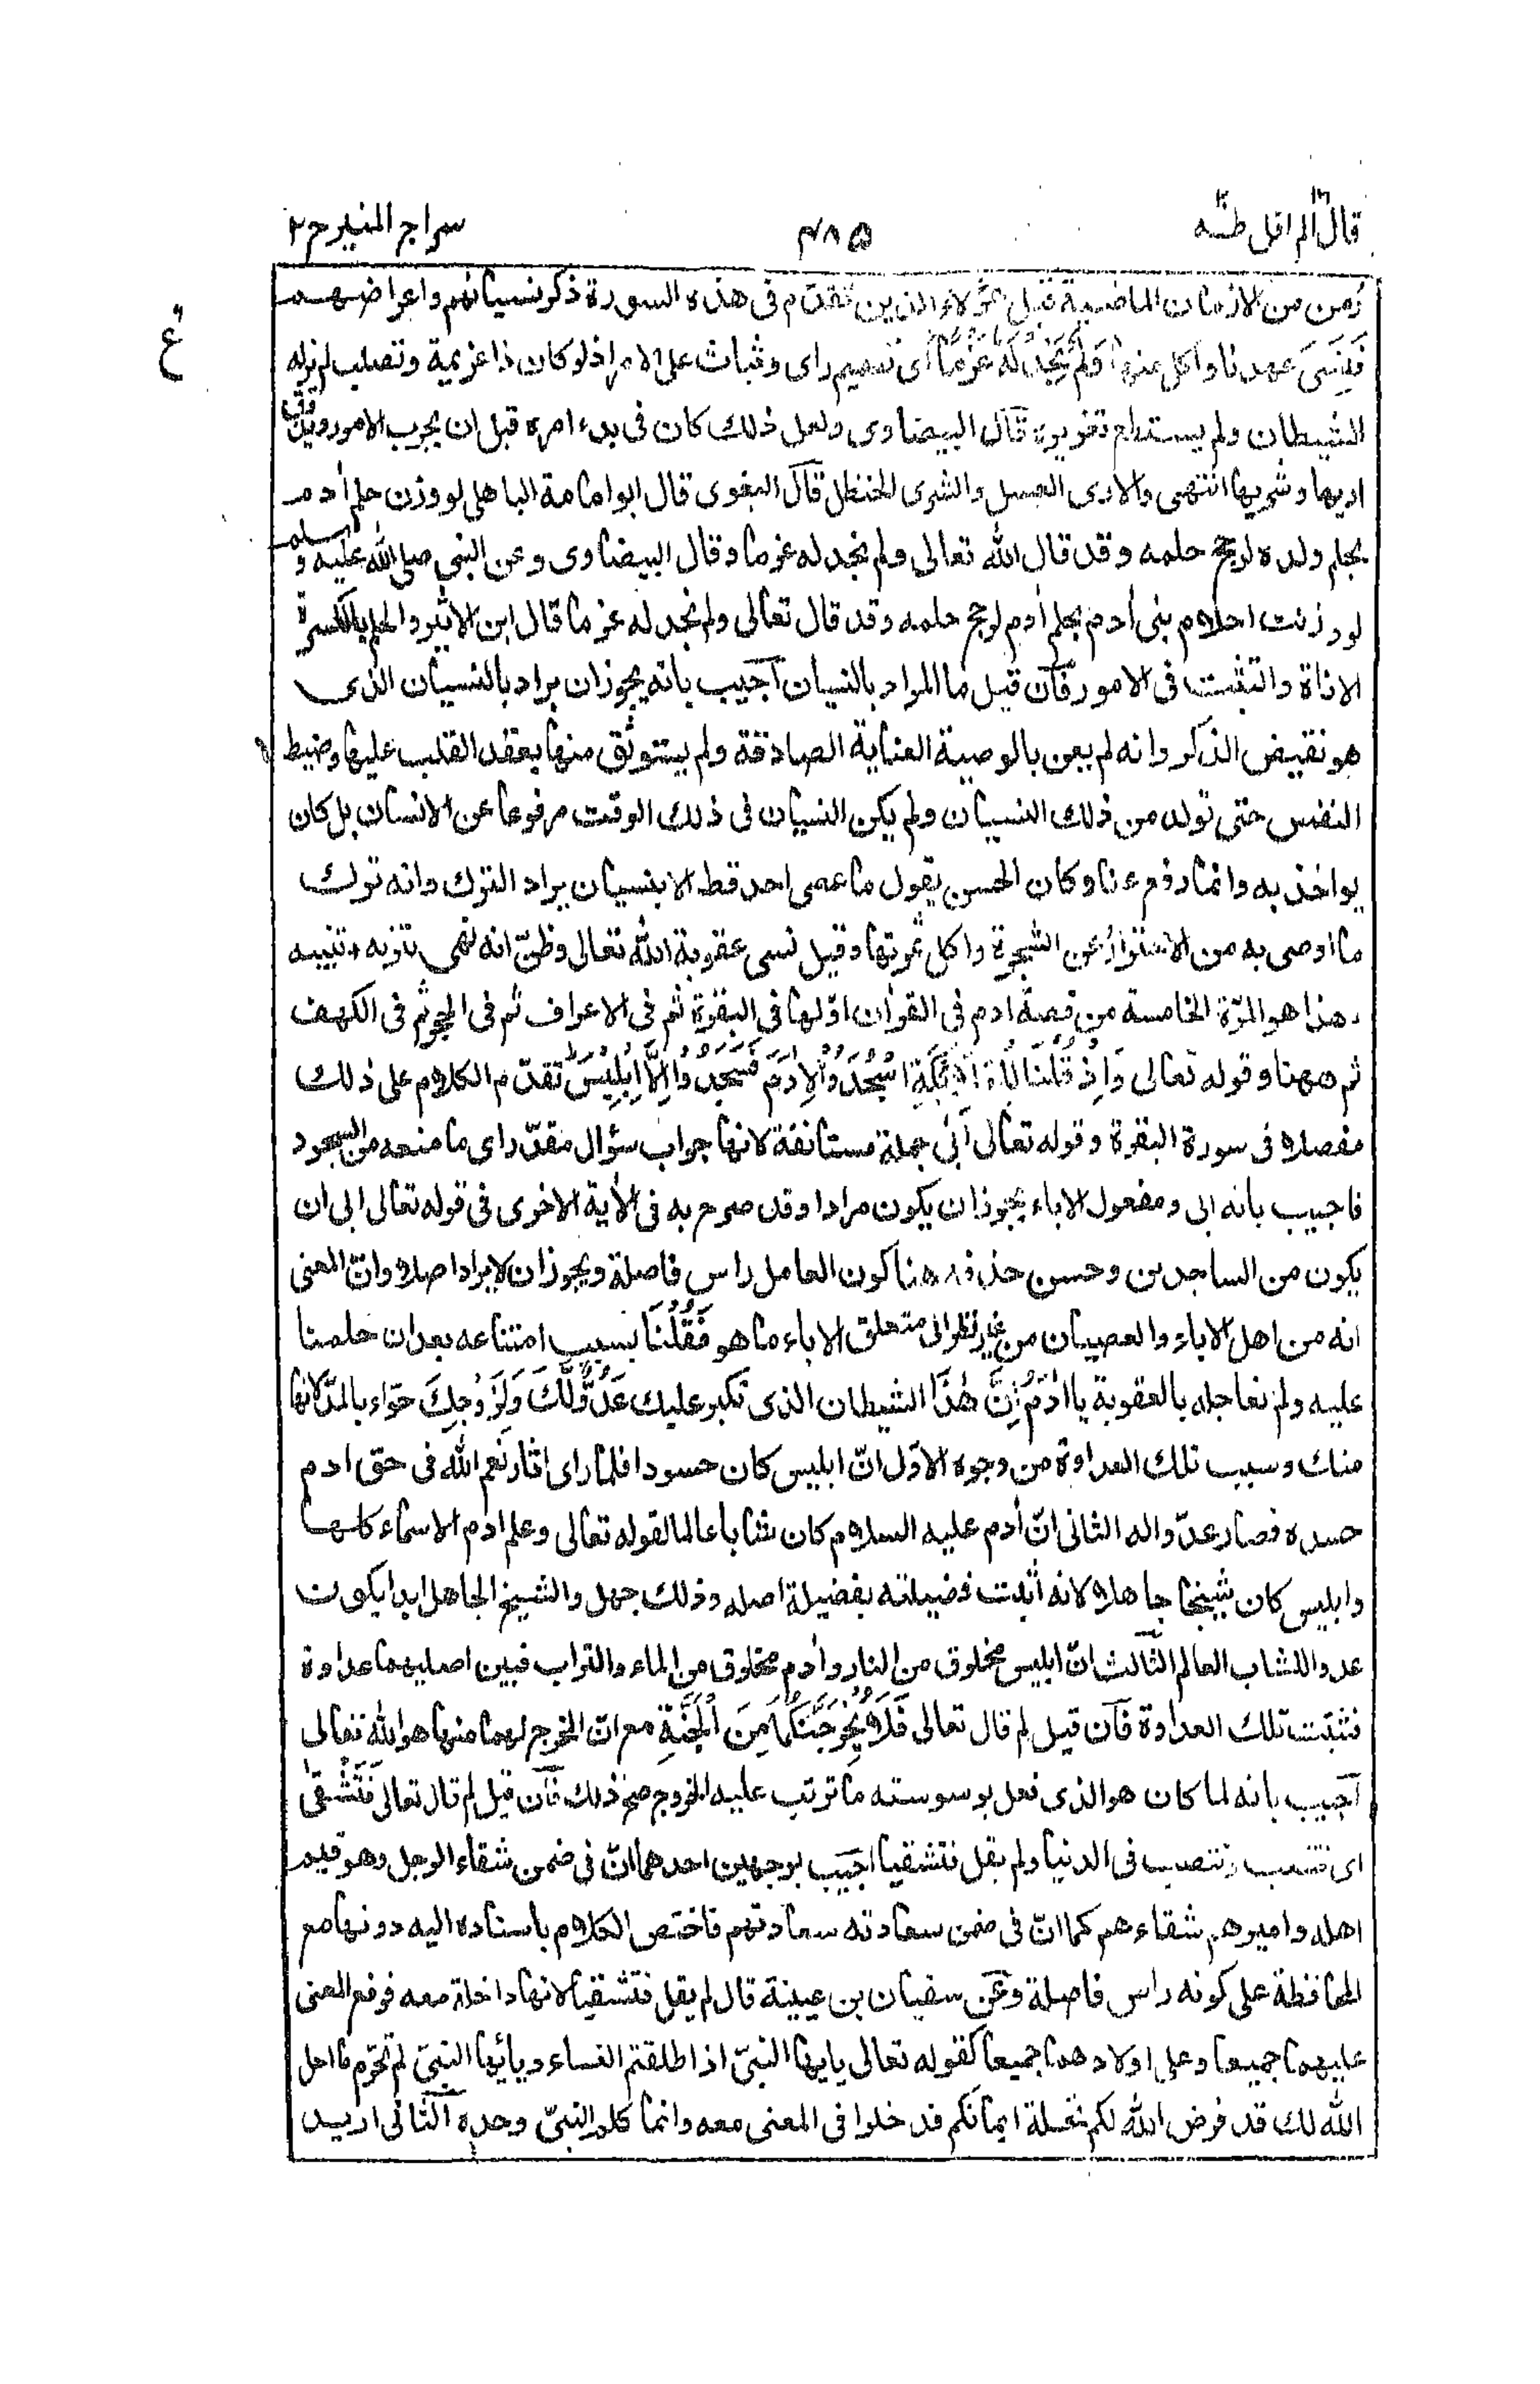 قال الم اقل طٰهٰ ٤٨٥ سراج المنير ج ٢
ع
زمن من الازمان الماضية قبل هؤلاء الذين تقدم فى هذه السورة ذكر نسيانهم واعراضهم
فَنَسِىَ عهدنا واكل منها وَلَمْ نَجِدْ لَهٗ عَزْمًا اى تصميم راى وثبات على الامر اذ لو كان ذا عزيمة وتصلب لم يزله
الشيطان ولم يستطع تغريره قال البيضاوى ولعل ذلك كان فى بدء امره قبل ان يجرب الامور ويذوق
اريها وشريها انتهى والارى العسل والشرى الحنظل قال البغوى قال ابو امامة الباهلى لو وزن حلم اٰدم
بحلم ولده لرجح حلمه وقد قال الله تعالى ولم نجد له عزما وقال البيضاوى وعن النبى صلى الله عليه وسلم
لو وزنت احلام بنى اٰدم بحلم اٰدم لرجح حلمه وقد قال تعالى ولم نجد له عزما قال ابن الاثير والحلم بالكسرة
الاناة والتثبت فى الامور فان قيل ما المراد بالنسيان اجيب بانه يجوز ان يراد بالنسيان الذى
هو نقيض الذكر وانه لم يعن بالوصية العناية الصادقة ولم يستوثق منها بعقد القلب عليها وضبط
النفس حتى تولد من ذلك النسيان ولم يكن النسيان فى ذلك الوقت مرفوعا عن الانسان بل كان
يواخذ به وانما رفع عنا وكان الحسن يقول ما عصى احد قط الا بنسيان يراد الترك وانه ترك
ما اوصى به من الاحتراز عن الشجرة واكل ثمرتها وقيل نسى عقوبة الله تعالى وظنّ انه نهى تنزيه تنبيه
هذا هو المرّة الخامسة من قصة ادم فى القراٰن اوّلها فى البقرة ثم فى الاعراف ثم فى الحجر ثم فى الكهف
ثم ههنا وقوله تعالى وَاِذْ قُلْنَا لِلْمَلٰٓئِكَةِ اسْجُدُوْا لِاٰدَمَ فَسَجَدُوْٓا اِلَّآ اِبْلِيْسَ تقدّم الكلام على ذلك
مفصلا فى سورة البقرة وقوله تعالى اَبٰى جملة مستانفة لانها جواب سؤال مقدّر اى ما منعه من السجود
فاجيب بانه ابى ومفعول الاباء يجوز ان يكون مرادا وقد صرح به فى الاٰية الاخرى فى قوله تعالى ابى ان
يكون من الساجدين وحسن حذفه هنا كون العامل راس فاصلة ويجوز ان لا يراد اصلا وانّ المعنى
انه من اهل الاباء والعصيان من غير نظر الى متعلق الاباء ما هو فَقُلْنَا بسبب امتناعه بعد ان حلمنا
عليه ولم نعاجله بالعقوبة يَا اٰدَمُ اِنَّ هٰذَا الشيطان الذى تكبر عليك عَدُوٌّ لَّكَ وَلِزَوْجِكَ حوّاء بالمدّ لانها
منك وسبب تلك العداوة من وجوه الاوّل انّ ابليس كان حسودا فلما راى اٰثار نعم الله فى حق ادم
حسده فصار عدّوا له الثانى انّ اٰدم عليه السلام كان شابا عالما لقوله تعالى وعلم ادم الاسماء كلها
وابليس كان شيخا جاهلا لانه اثبت فضيلته بفضيلة اصله وذلك جهل والشيخ الجاهل ابدا يكون
عدوا للشاب العالم الثالث انّ ابليس مخلوق من النار واٰدم مخلوق من الماء والتراب فبين اصليهما عداوة
فثبتت تلك العداوة فان قيل لم قال تعالى فَلَا يُخْرِجَنَّكُمَا مِنَ الْجَنَّةِ مع انّ المخرج لهما منها هو الله تعالى
اجيب بانه لما كان هو الذى فعل بوسوسته ما ترتب عليه الخروج صح ذلك فان قيل لم قال تعالى فَتَشْقٰى
اى فتتعب وتنصب فى الدنيا ولم يقل فتشقيا اجيب بوجهين احدهما انّ فى ضمن شقاء الرجل وهو قيم
اهله واميرهم شقاءهم كما انّ فى ضمن سعادته سعادتهم فاختص الكلام باسناده اليه دونها مع
المحافظة على كونه راس فاصلة وعن سفيان بن عيينة قال لم يقل فتشقيا لانها داخلة معه فوقع المعنى
عليهما جميعا وعلى اولادهما جميعا كقوله تعالى يايها النبىّ اذا طلقتم النساء ويائيها النبىّ لم تحرّم ما احل
الله لك قد فرض الله لكم تحلة ايمانكم فدخلوا فى المعنى معه وانما كلم النبىّ وحده الثانى اريد